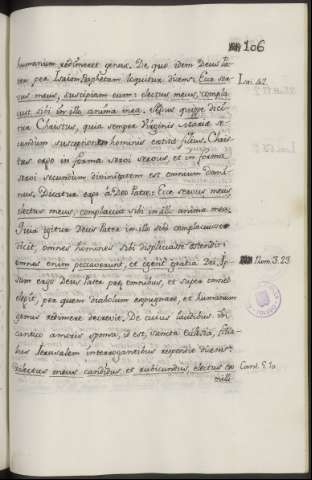 106
humanum redimeret genus. De quo idem Deus Pa-
ter per Isaiam Prophetam loquitur dicens: Ecce ser-
vus meus, suscipiam eum: electus meus, compla-
cuit sibi in illo anima mea. Servus quippe dici-
tur Christus, quia semper Virginis Mariae se-
cundum susceptionem hominis extitit filius. Chris-
tus ergo in forma servi servus, et in forma
servi secundum divinitatem est omnium domi-
nus. Dicatur ergo a Deo Patre: Ecce servus meus
electus meus, complacuit sibi in illo anima mea.
Quia igitur Deus Pater in illo sibi complacuisse
dicit, omnes homines sibi displicuisse ostendit:
omnes enim peccaverunt, et egent gratia Dei. Ip-
sum ergo Deus Pater prae omnibus, et super omnes
elegit, per quem diabolum expugnaret, et humanum
genus redimere decrevit. De cuius laudibus in
cantico amoris sponsa, id est, sancta Ecclesia, filia-
bus Jerusalem interrogantibus respondit dicens:
Dilectus meus candidus et rubicundus, electus ex
milli
Isai. 42.
Rom. 3. 23
Cant. 5. 10